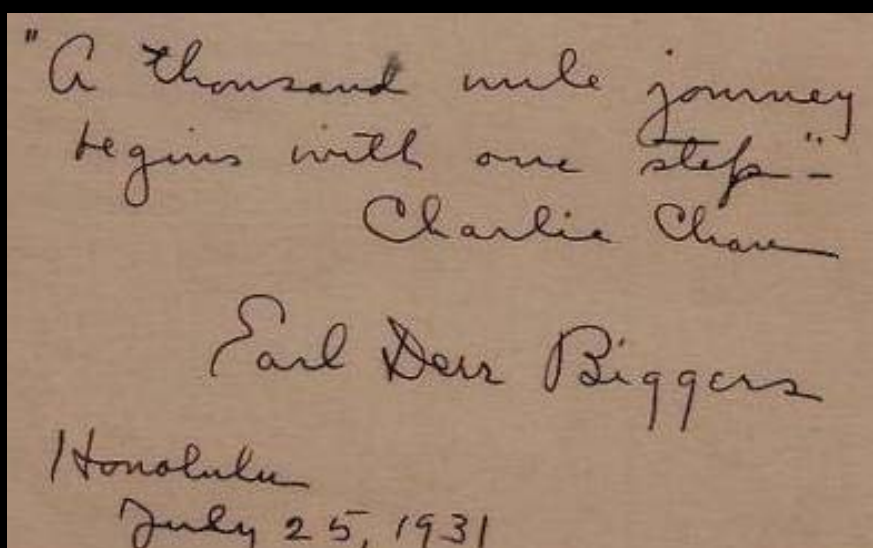 "A thousand mile journey
begins with one step" -
Charlie Chan
Earl Derr Biggers
Honolulu
July 25, 1931